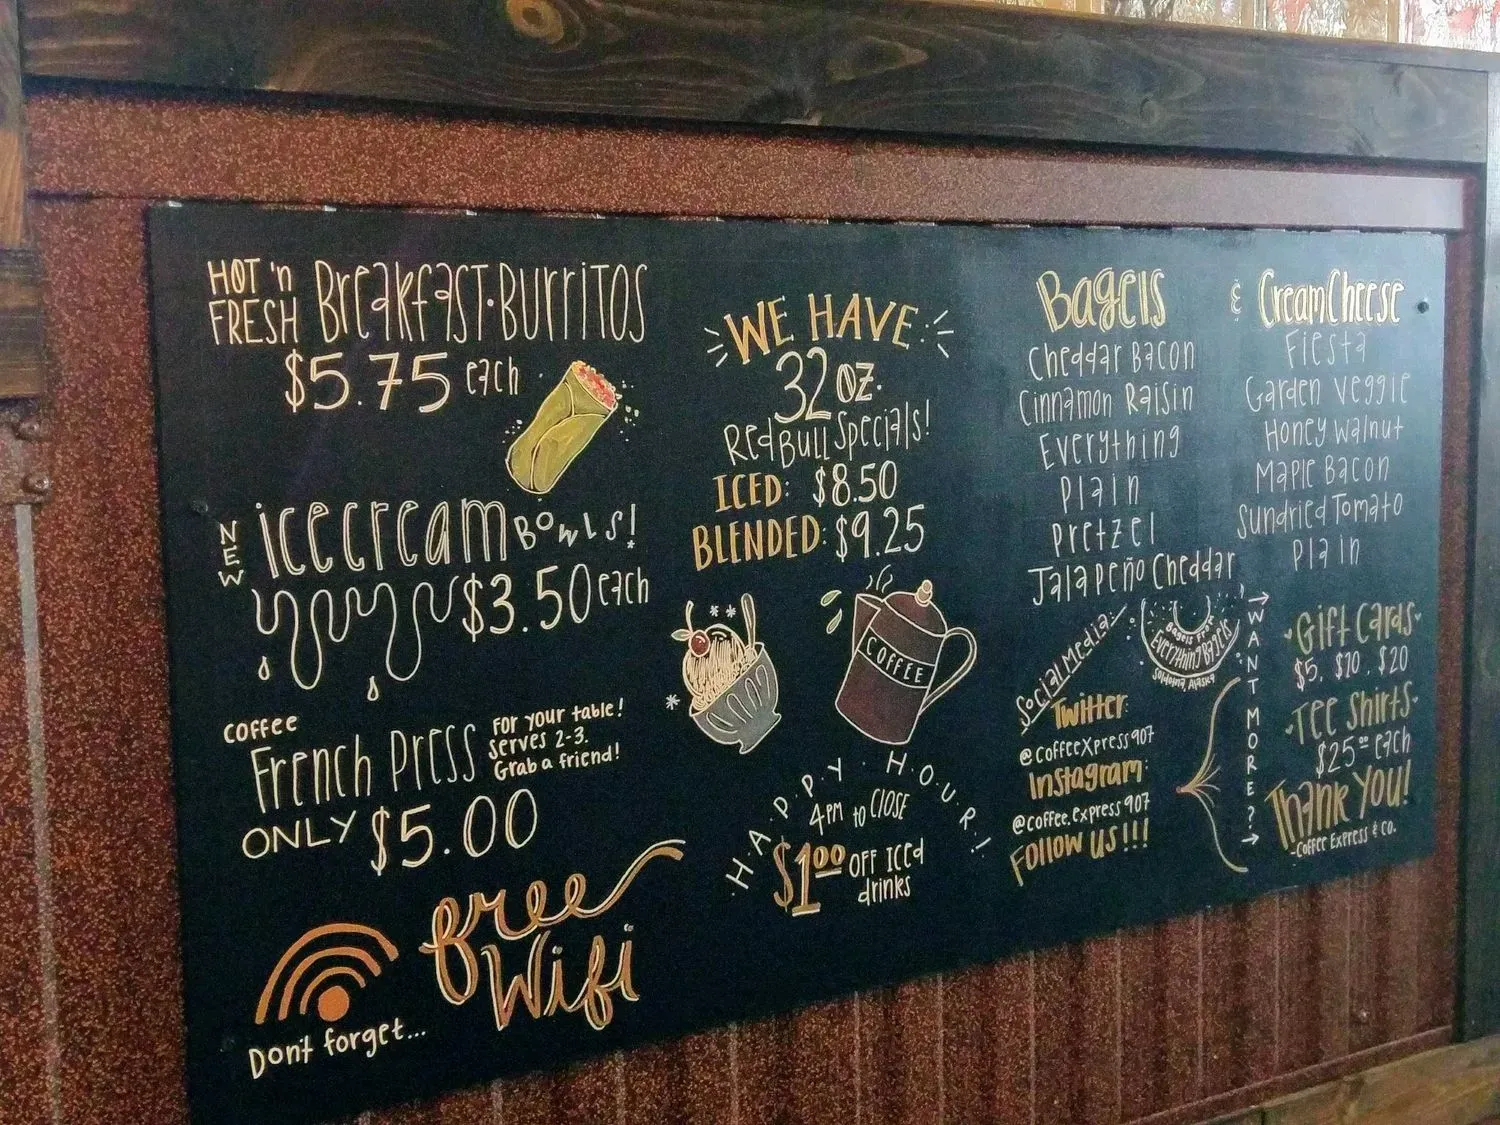 HOT 'n
FRESH Breakfast·Burritos
$5.75 each
NEW icecream Bowls!
$3.50 each
coffee
French Press
for your table!
serves 2-3.
Grab a friend!
ONLY $5.00
free
Wifi
Don't forget...
WE HAVE:
32 oz.
Red Bull Specials!
ICED: $8.50
BLENDED: $9.25
COFFEE
HAPPY HOUR!
4PM to CLOSE
$1.00 OFF Iced
drinks
Bagels
Cheddar Bacon
Cinnamon Raisin
Everything
Plain
Pretzel
Jalapeño Cheddar
Bagels From
Everything Bagels
Soldotna, Alaska
Social Media:
Twitter:
@coffeeXpress907
Instagram:
@coffee.express907
Follow us!!!
& CreamCheese
Fiesta
Garden Veggie
Honey Walnut
Maple Bacon
Sundried Tomato
Plain
WANT MORE?
Gift Cards
$5, $10, $20
Tee Shirts
$25.00 each
Thank You!
-Coffee Express & Co.